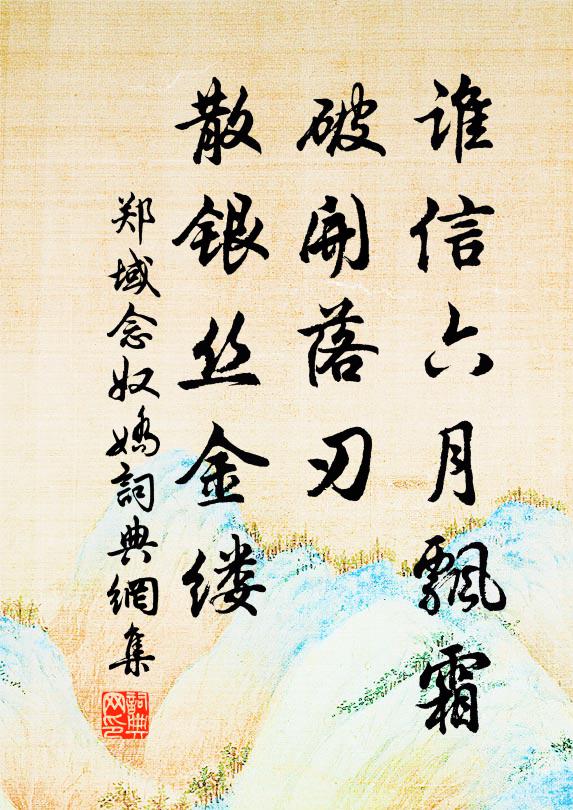 谁信六月飘霜
破开落刃
散银丝金缕
郑域念奴娇詞典網集
詞典
网印